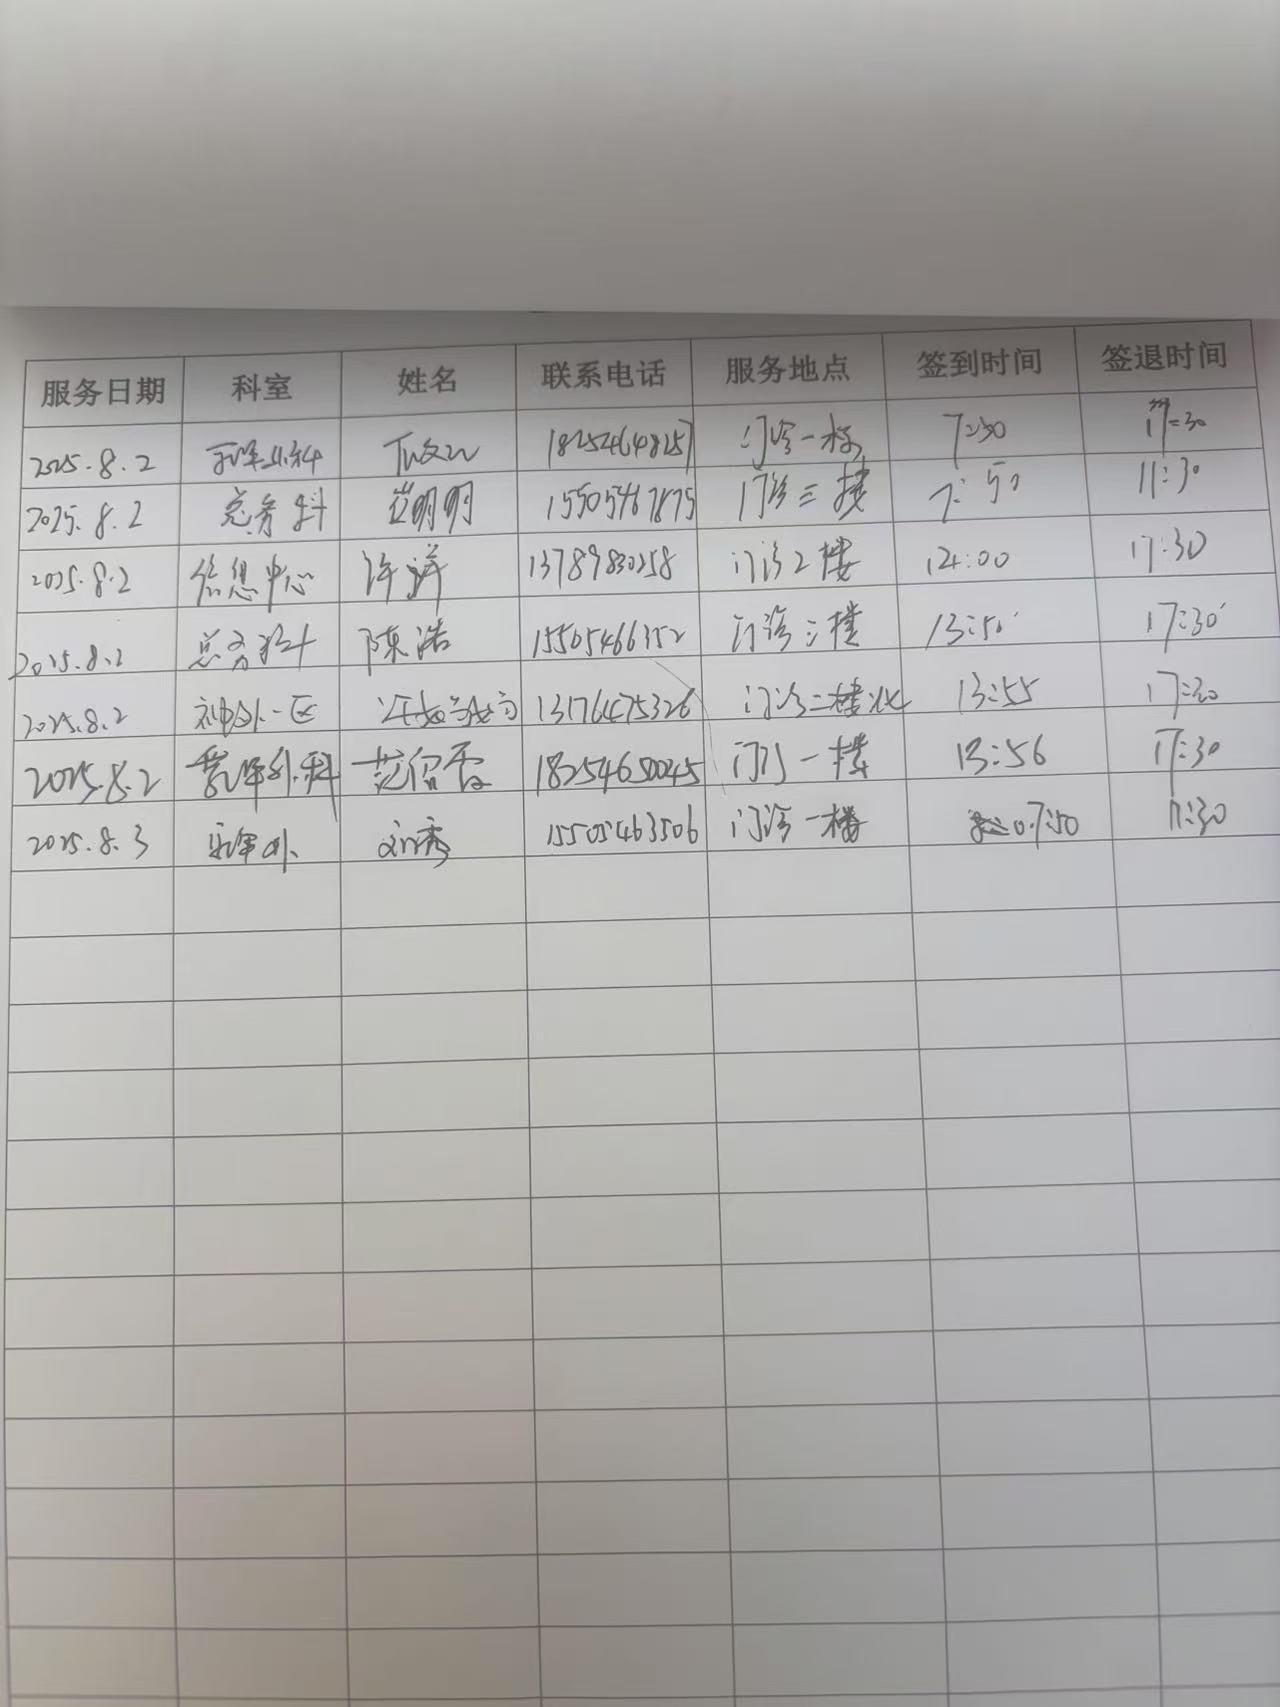 服务日期 科室 姓名 联系电话 服务地点 签到时间 签退时间
2025.8.2 18254648257 门诊一楼 7:30 17:30
2025.8.2 总务科 范明明 15505467875 门诊三楼 7:50 11:30
2025.8.2 信息中心 许洋 13789830258 门诊2楼 14:00 17:30
2025.8.2 总务科 陈浩 15505466352 门诊三楼 13:50 17:30
2025.8.2 神外一区 13176475326 门诊二楼北 13:55 17:30
2025.8.2 乳甲外科 18254650045 门诊一楼 13:56 17:30
2025.8.3 乳甲外 15505463506 门诊一楼 07:50 11:30